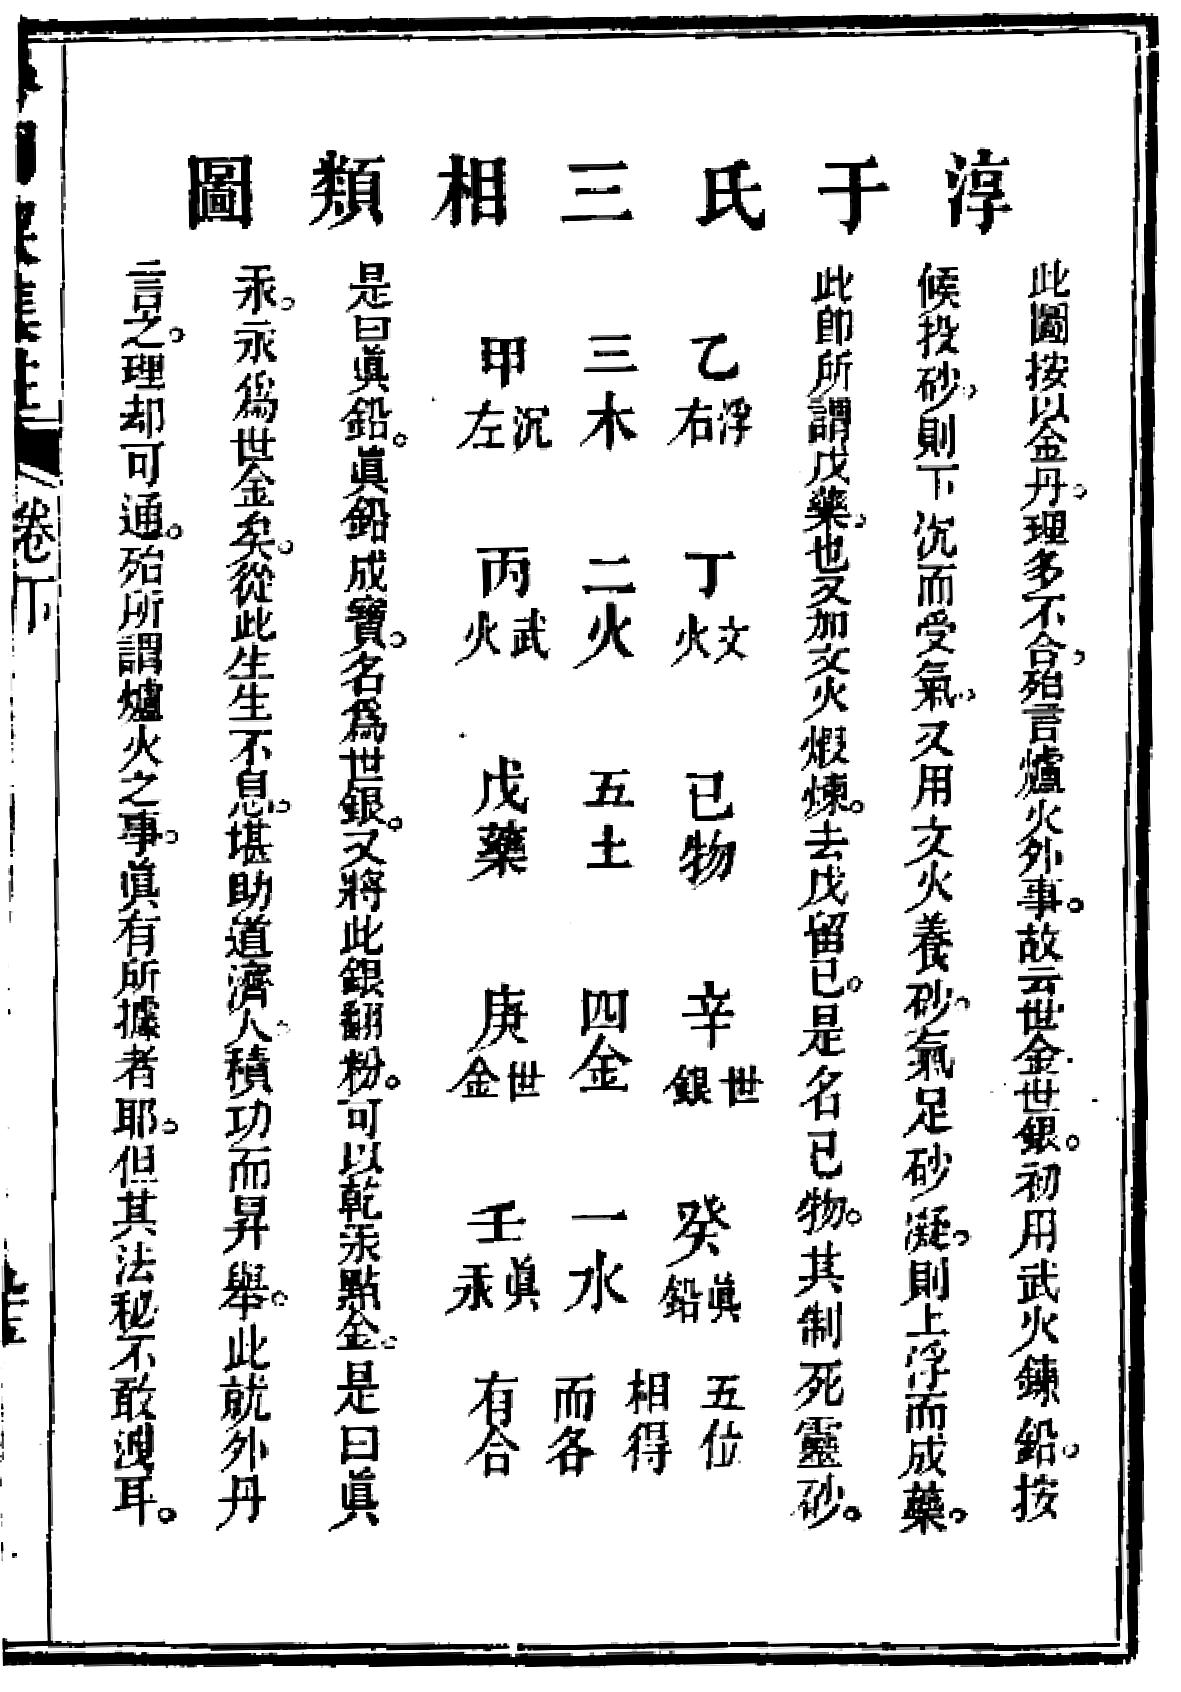 淳于氏三相類圖
此圖按以金丹。理多不合。殆言爐火外事。故云世金世銀。初用武火鍊鉛。按
候投砂。則下沉而受氣。又用文火養砂。氣足砂凝。則上浮而成藥。
此卽所謂戊藥。也又加文火煆煉。去戊留已。是名已物。其制死靈砂。
乙浮右 丁文火 已物 辛世銀 癸眞鉛
三木 二火 五土 四金 一水
甲沉左 丙武火 戊藥 庚世金 壬眞汞
五位
相得
而各
有合
是曰眞鉛。眞鉛成寶。名爲世銀。又將此銀翻粉。可以乾汞點金。是曰眞
汞。汞爲世金矣。從此生生不息。堪助道濟人。積功而昇舉。此就外丹
言之。理却可通。殆所謂爐火之事。眞有所據者耶。但其法秘不敢洩耳。
集注
卷下